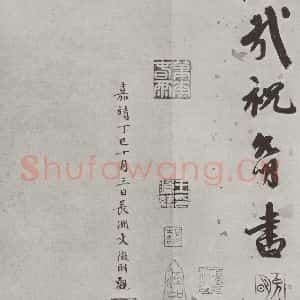 哉祝允明書
嘉靖丁巳十月三日長洲文徵明觀
Shufawang.Cn